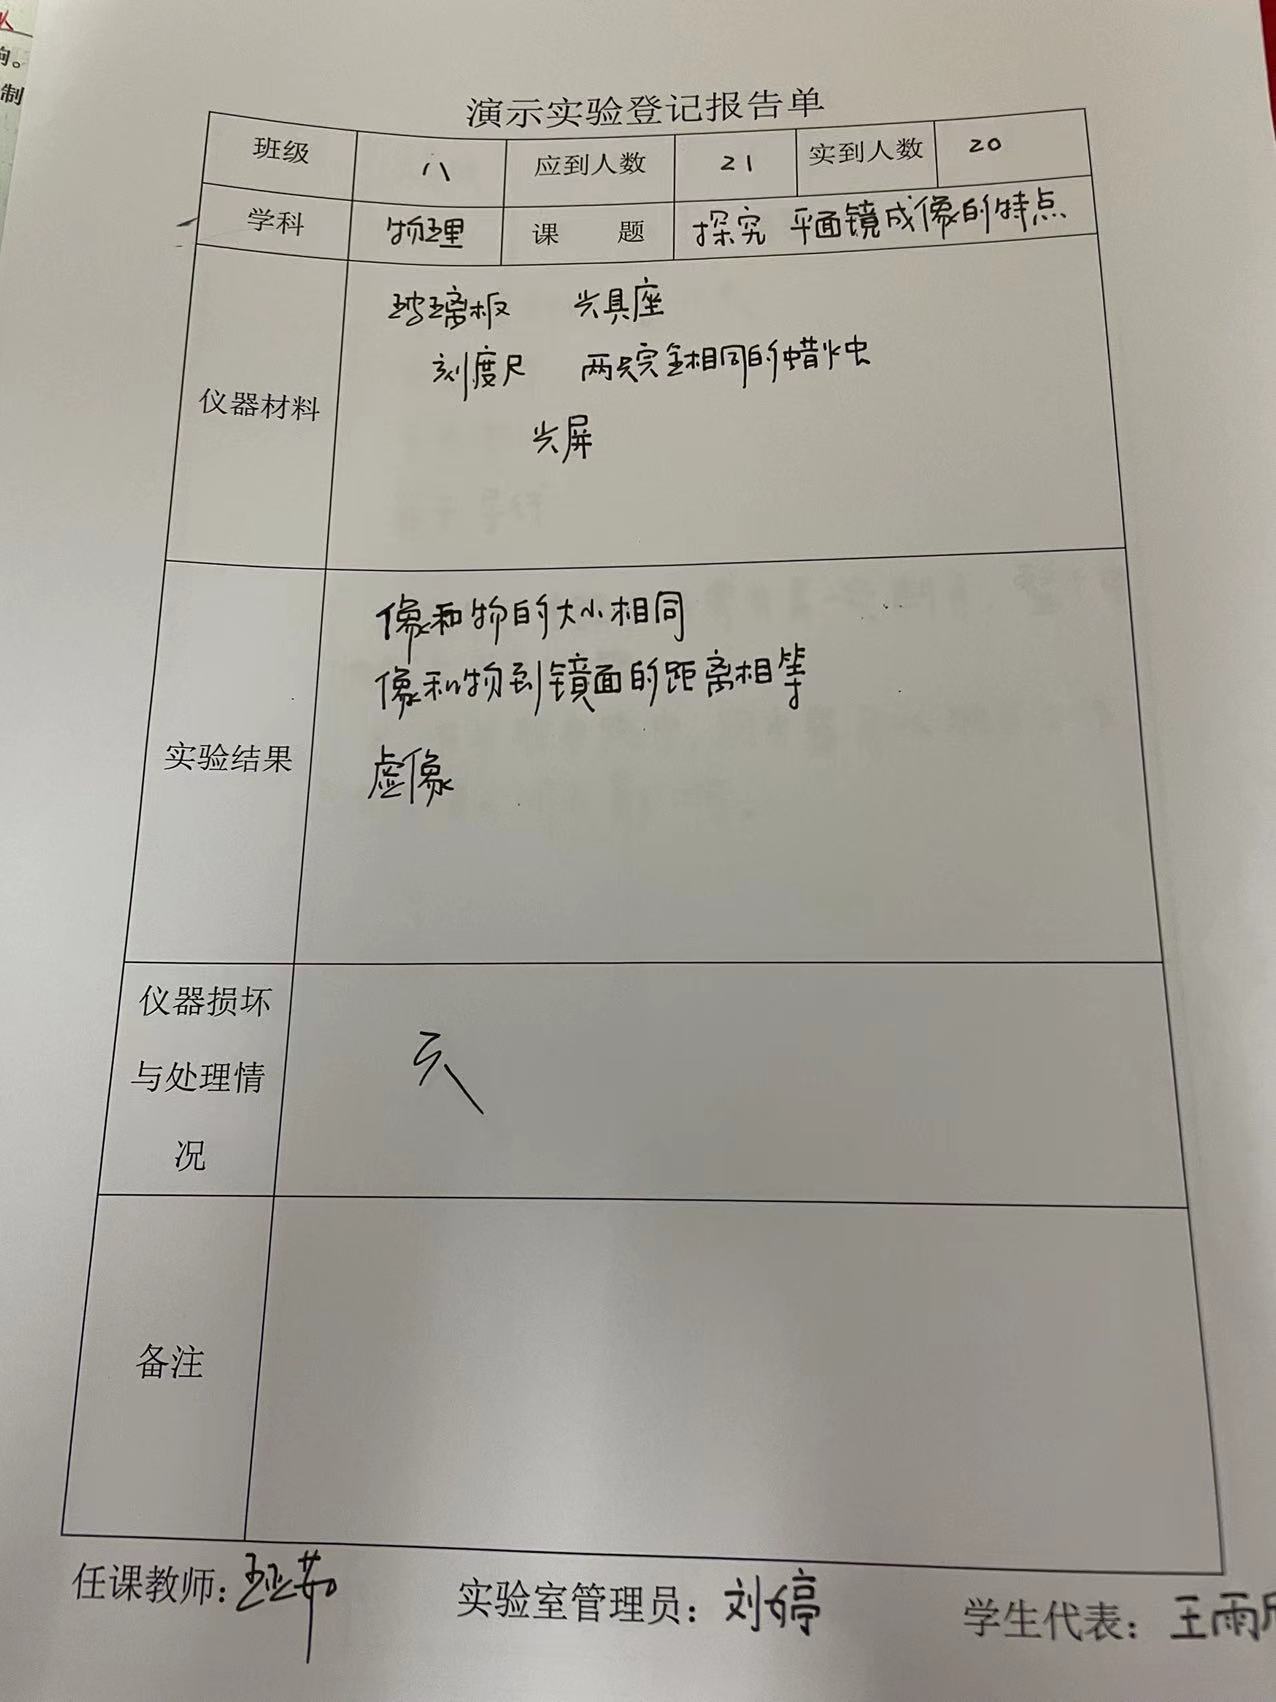 响。
制
演示实验登记报告单
班级 八 应到人数 21 实到人数 20
学科 物理 课 题 探究 平面镜成像的特点
仪器材料
玻璃板 光具座
刻度尺 两只完全相同的蜡烛
光屏
实验结果
像和物的大小相同
像和物到镜面的距离相等
虚像
仪器损坏
与处理情
况
无
备注
任课教师: 王亚茹 实验室管理员: 刘婷 学生代表: 王雨